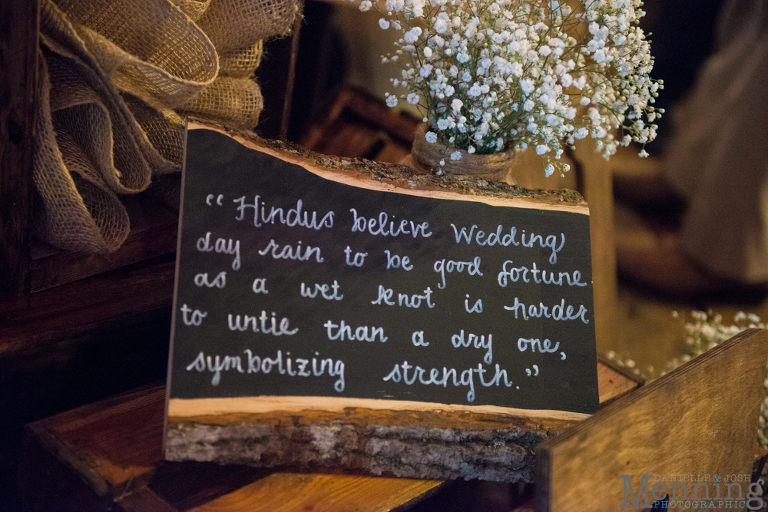 “Hindus believe Wedding
day rain to be good fortune
as a wet knot is harder
to untie than a dry one,
symbolizing strength.”
DANIELLE & JOSH
Menning
PHOTOGRAPHIC